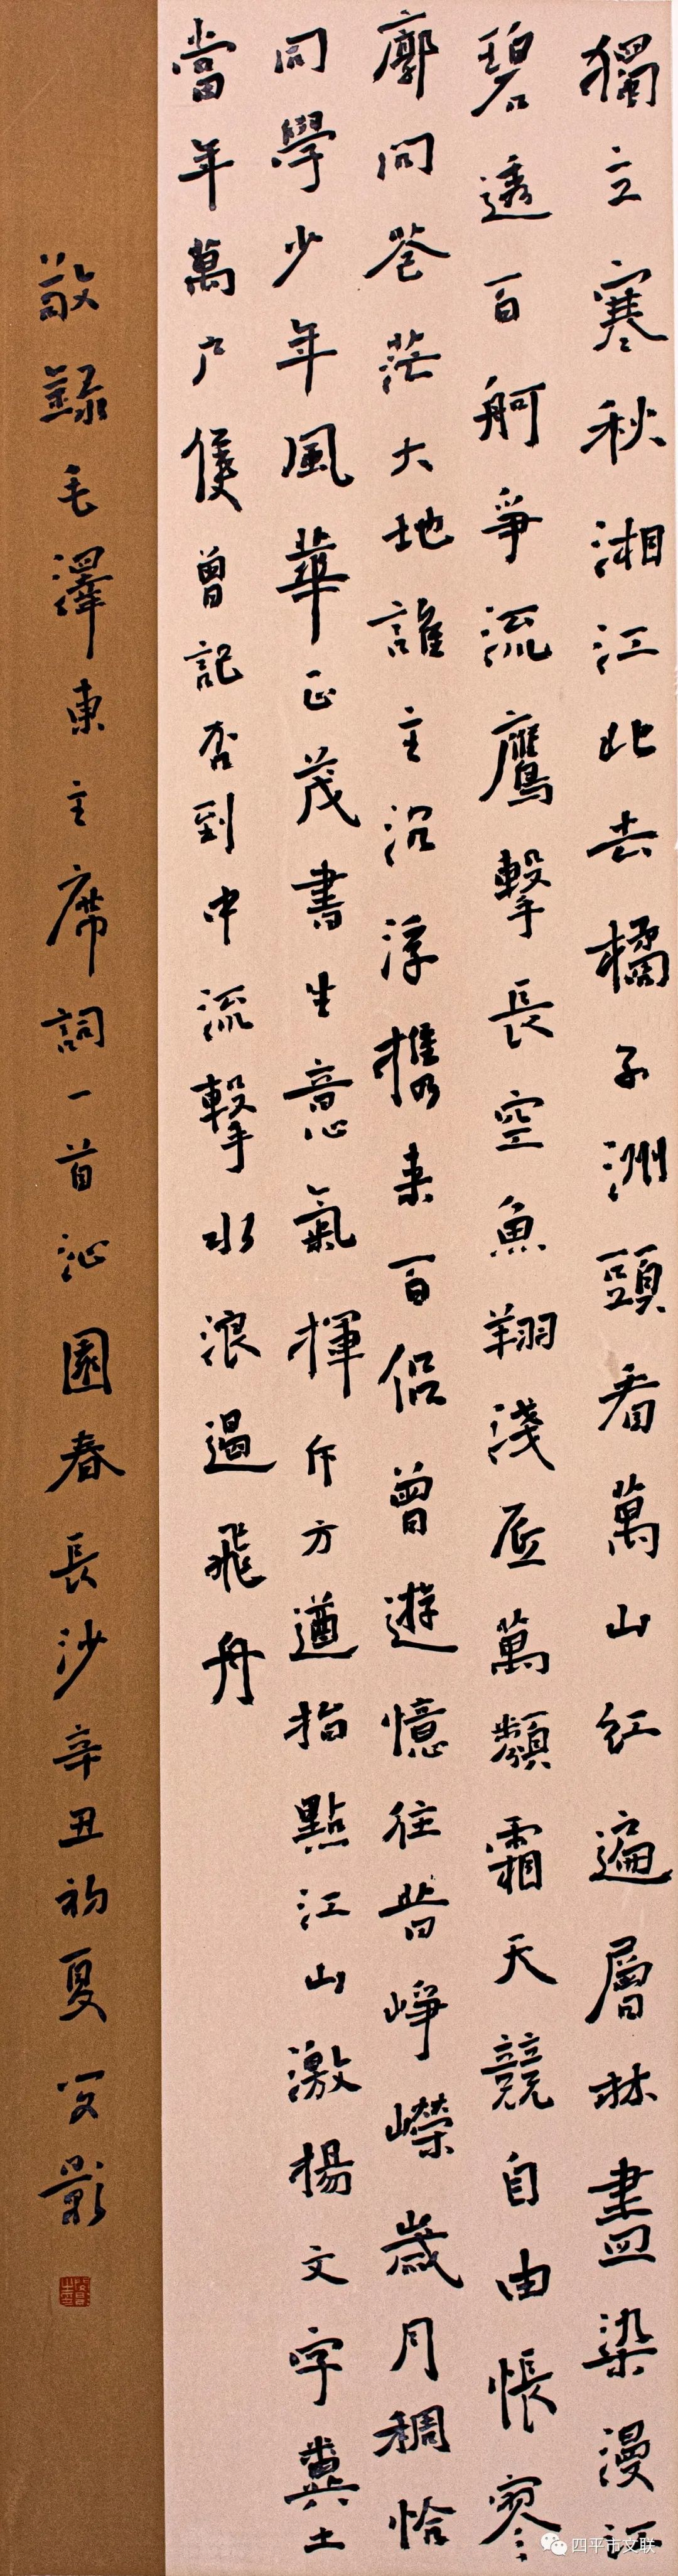 獨立寒秋湘江北去橘子洲頭看萬山紅遍層林盡染漫江
碧透百舸爭流鷹擊長空魚翔淺底萬類霜天競自由悵寥
廓問蒼茫大地誰主沉浮攜來百侶曾遊憶往昔崢嶸歲月稠恰
同學少年風華正茂書生意氣揮斥方遒指點江山激揚文字糞土
當年萬戶侯曾記否到中流擊水浪遏飛舟
敬錄毛澤東主席詞一首沁園春長沙辛丑初夏
四平市文联